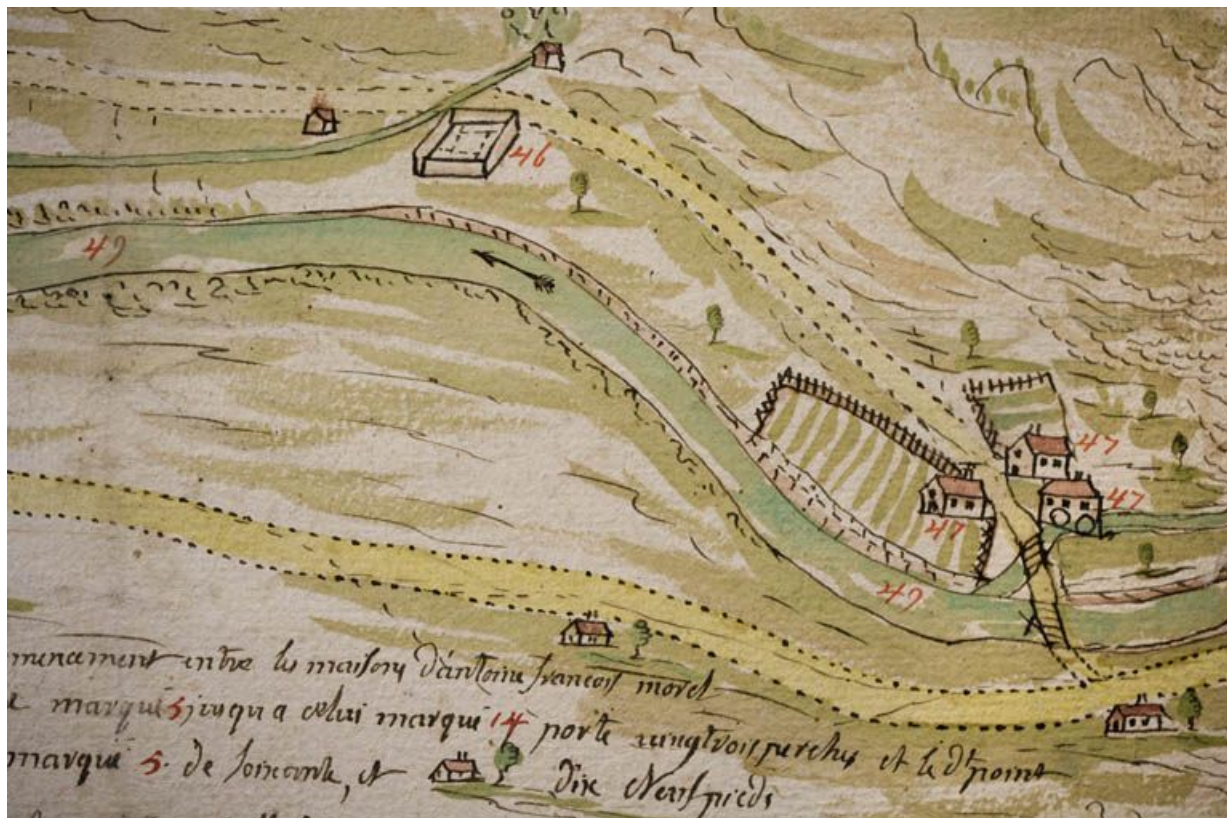 46
49
47
47
47
49
mencement entre les maisons d'antoine françois morel
marqué 5 jusqu a celui marqué 14 porte vingt trois perches et le dt point
marqué 5. de soixante, et dix Neuf pieds